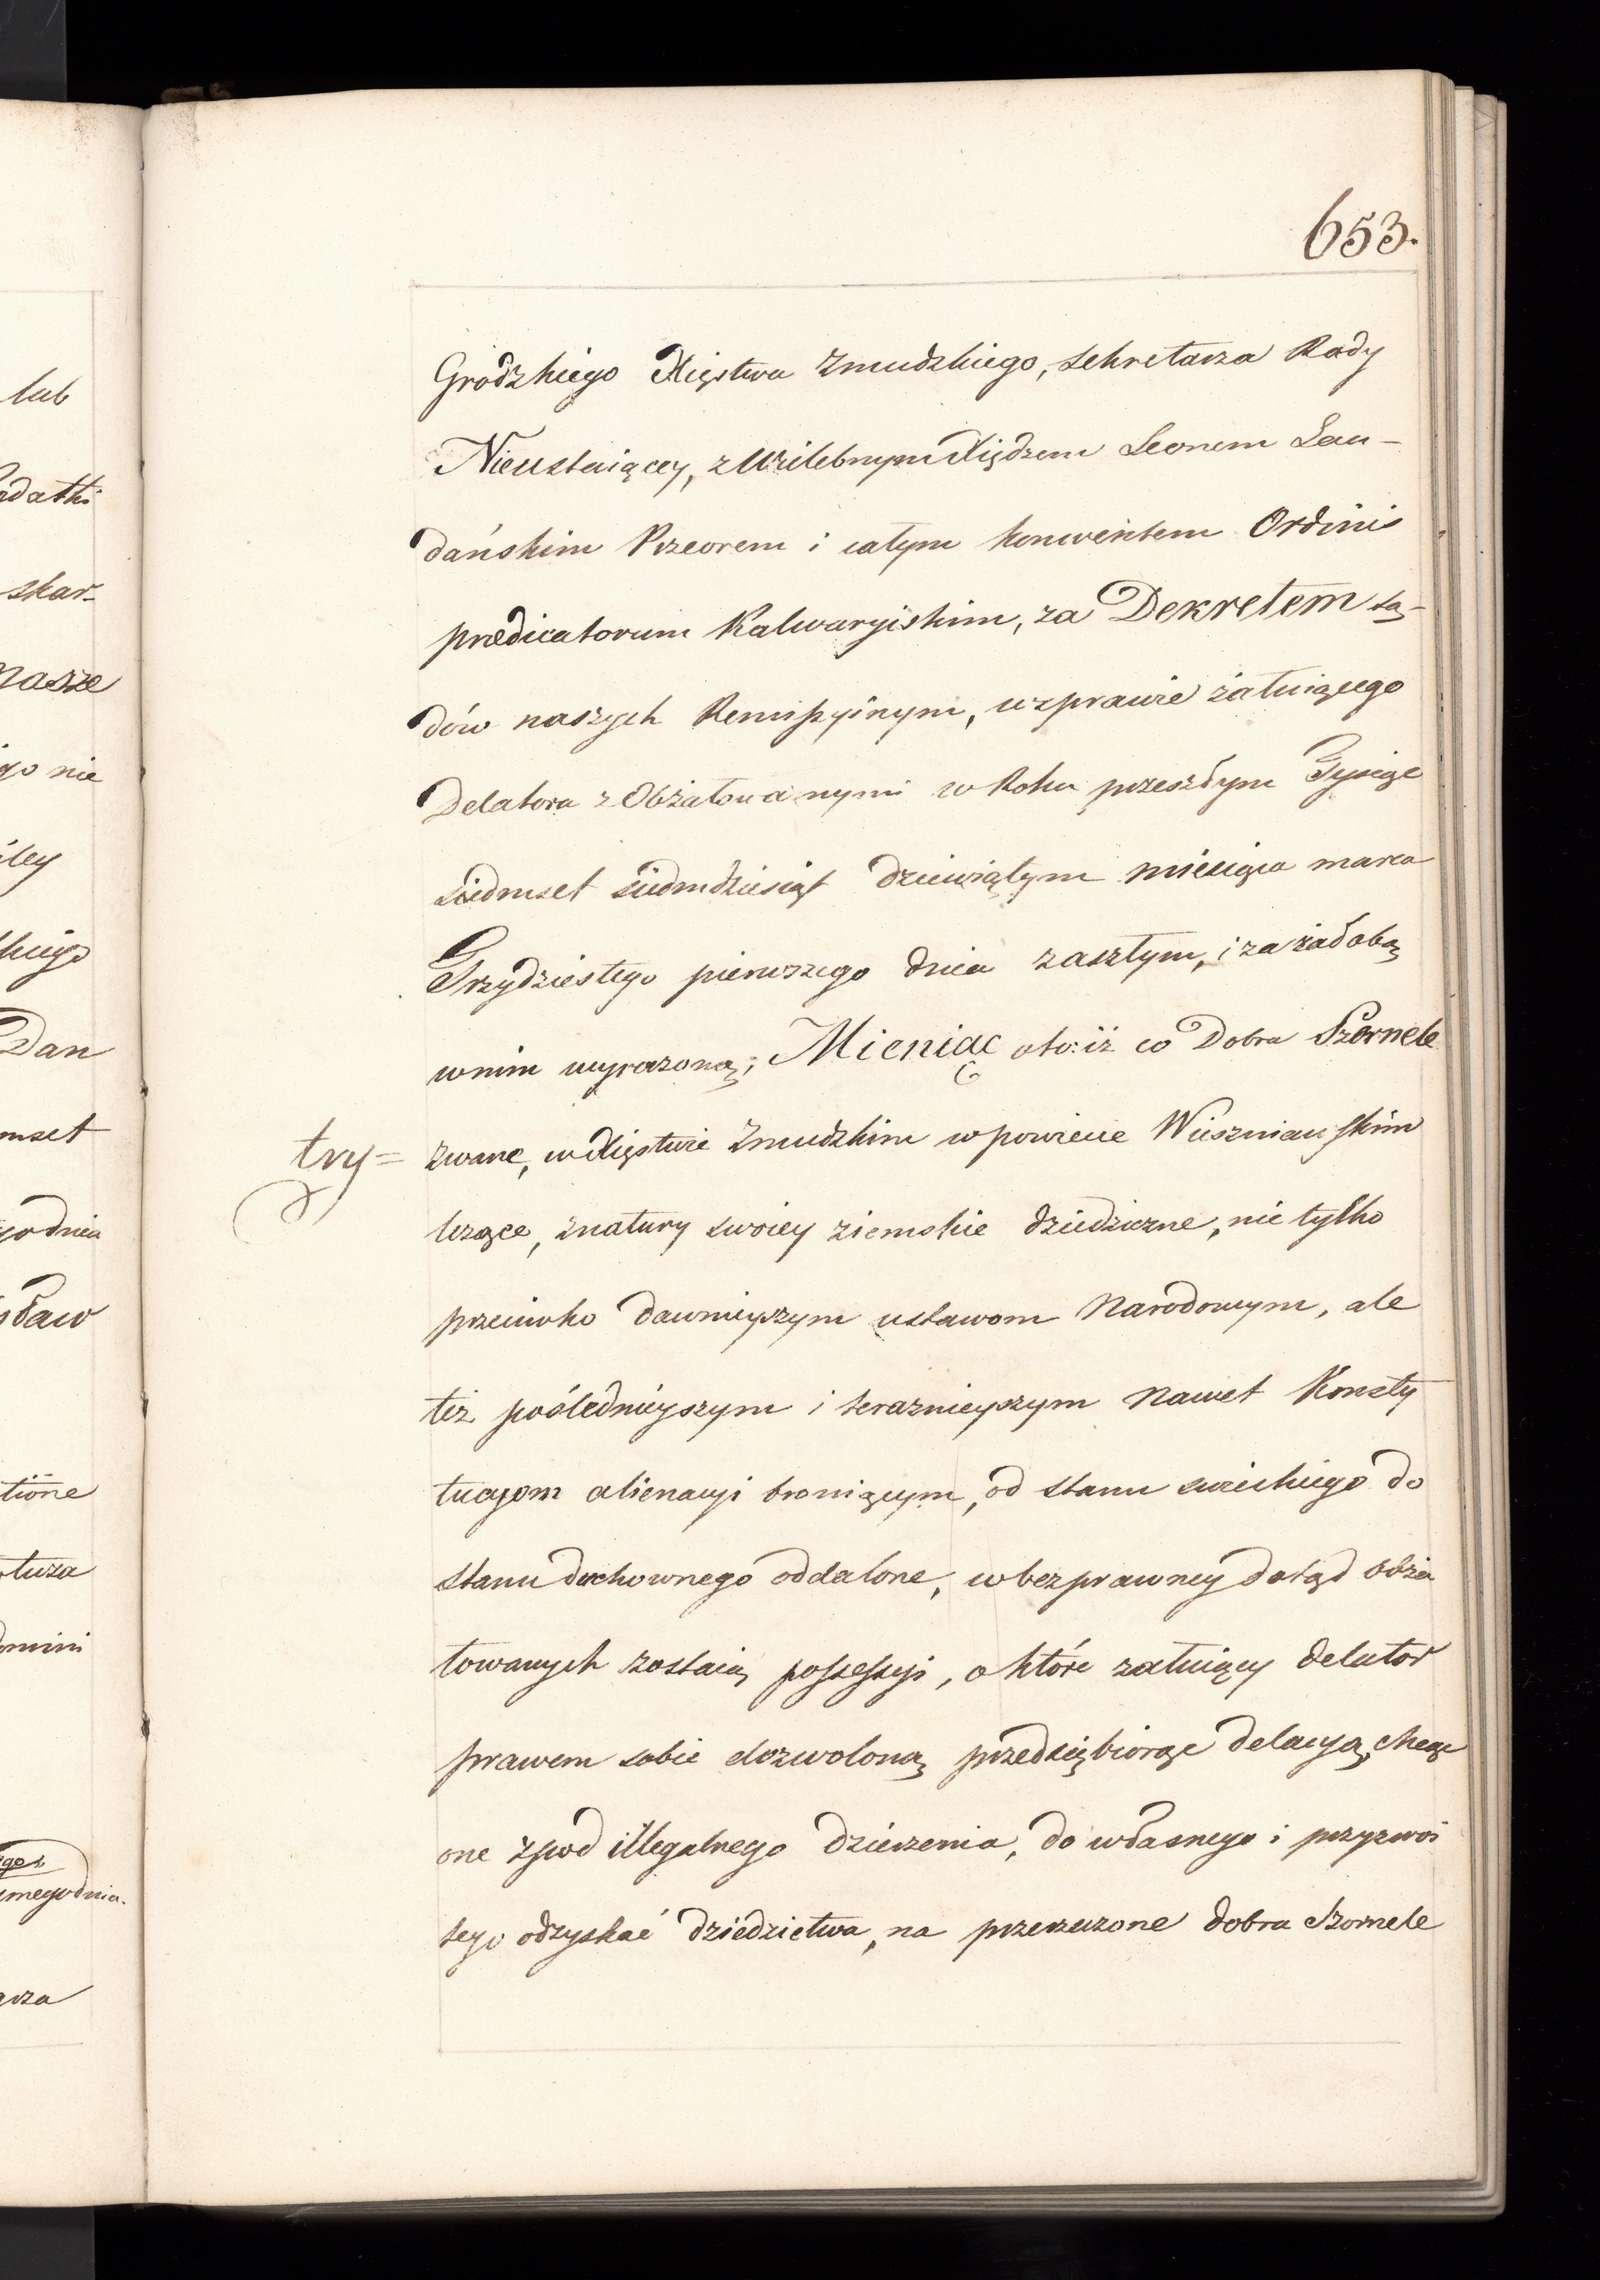 653.
Grodzkiego Xięstwa Zmudzkiego, Sekretarza Rady
Nieustaiącey, z Wielebnym Xiędzem Leonem Lau-
dańskim Przeorem i całym konwentem Ordinis
prædicatorum Kalwaryiskim, za Dekretem są-
dów naszych Remissyinym, w sprawie żałuiącego
Delatora z Obżałowanymi w Roku przeszłym Tysiąc
siedmset siedmdziesiąt dziewiątym miesiąca marca
Trzydziestego pierwszego dnia zaszłym, i za żałobą
w nim wyrażoną; Mieniąc oto: iż co Dobra Szornele
try= zwane, w Xięstwie Zmudzkim w powiecie Wieszniańskim
leżące, z natury swoiey ziemskie dziedziczne, nie tylko
przeciwko dawnieyszym ustawom Narodowym, ale
też poślednieyszym i teraznieyszym nawet Konsty
tucyom alienacyi broniącym, od stanu swieckiego do
stanu duchownego oddalone, w bezprawney dotąd obża
łowanych zostaią possessyi, o które żałuiący delator
prawem sobie dozwoloną przedsiębiorąc delacyą, chcąc
one zpod illegalnego dzierżenia, do własnego i przyzwoi
tego odzyskać dziedzictwa, na przerzeczone dobra Szornele
lub
skar-
nasze
go nie
Dan
mset
domini